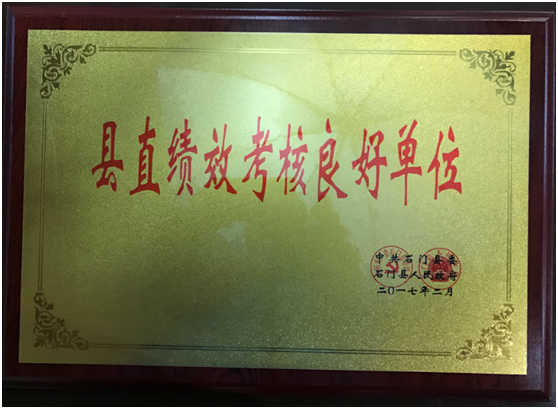 县直绩效考核良好单位
中共石门县委
石门县人民政府
二〇一七年二月